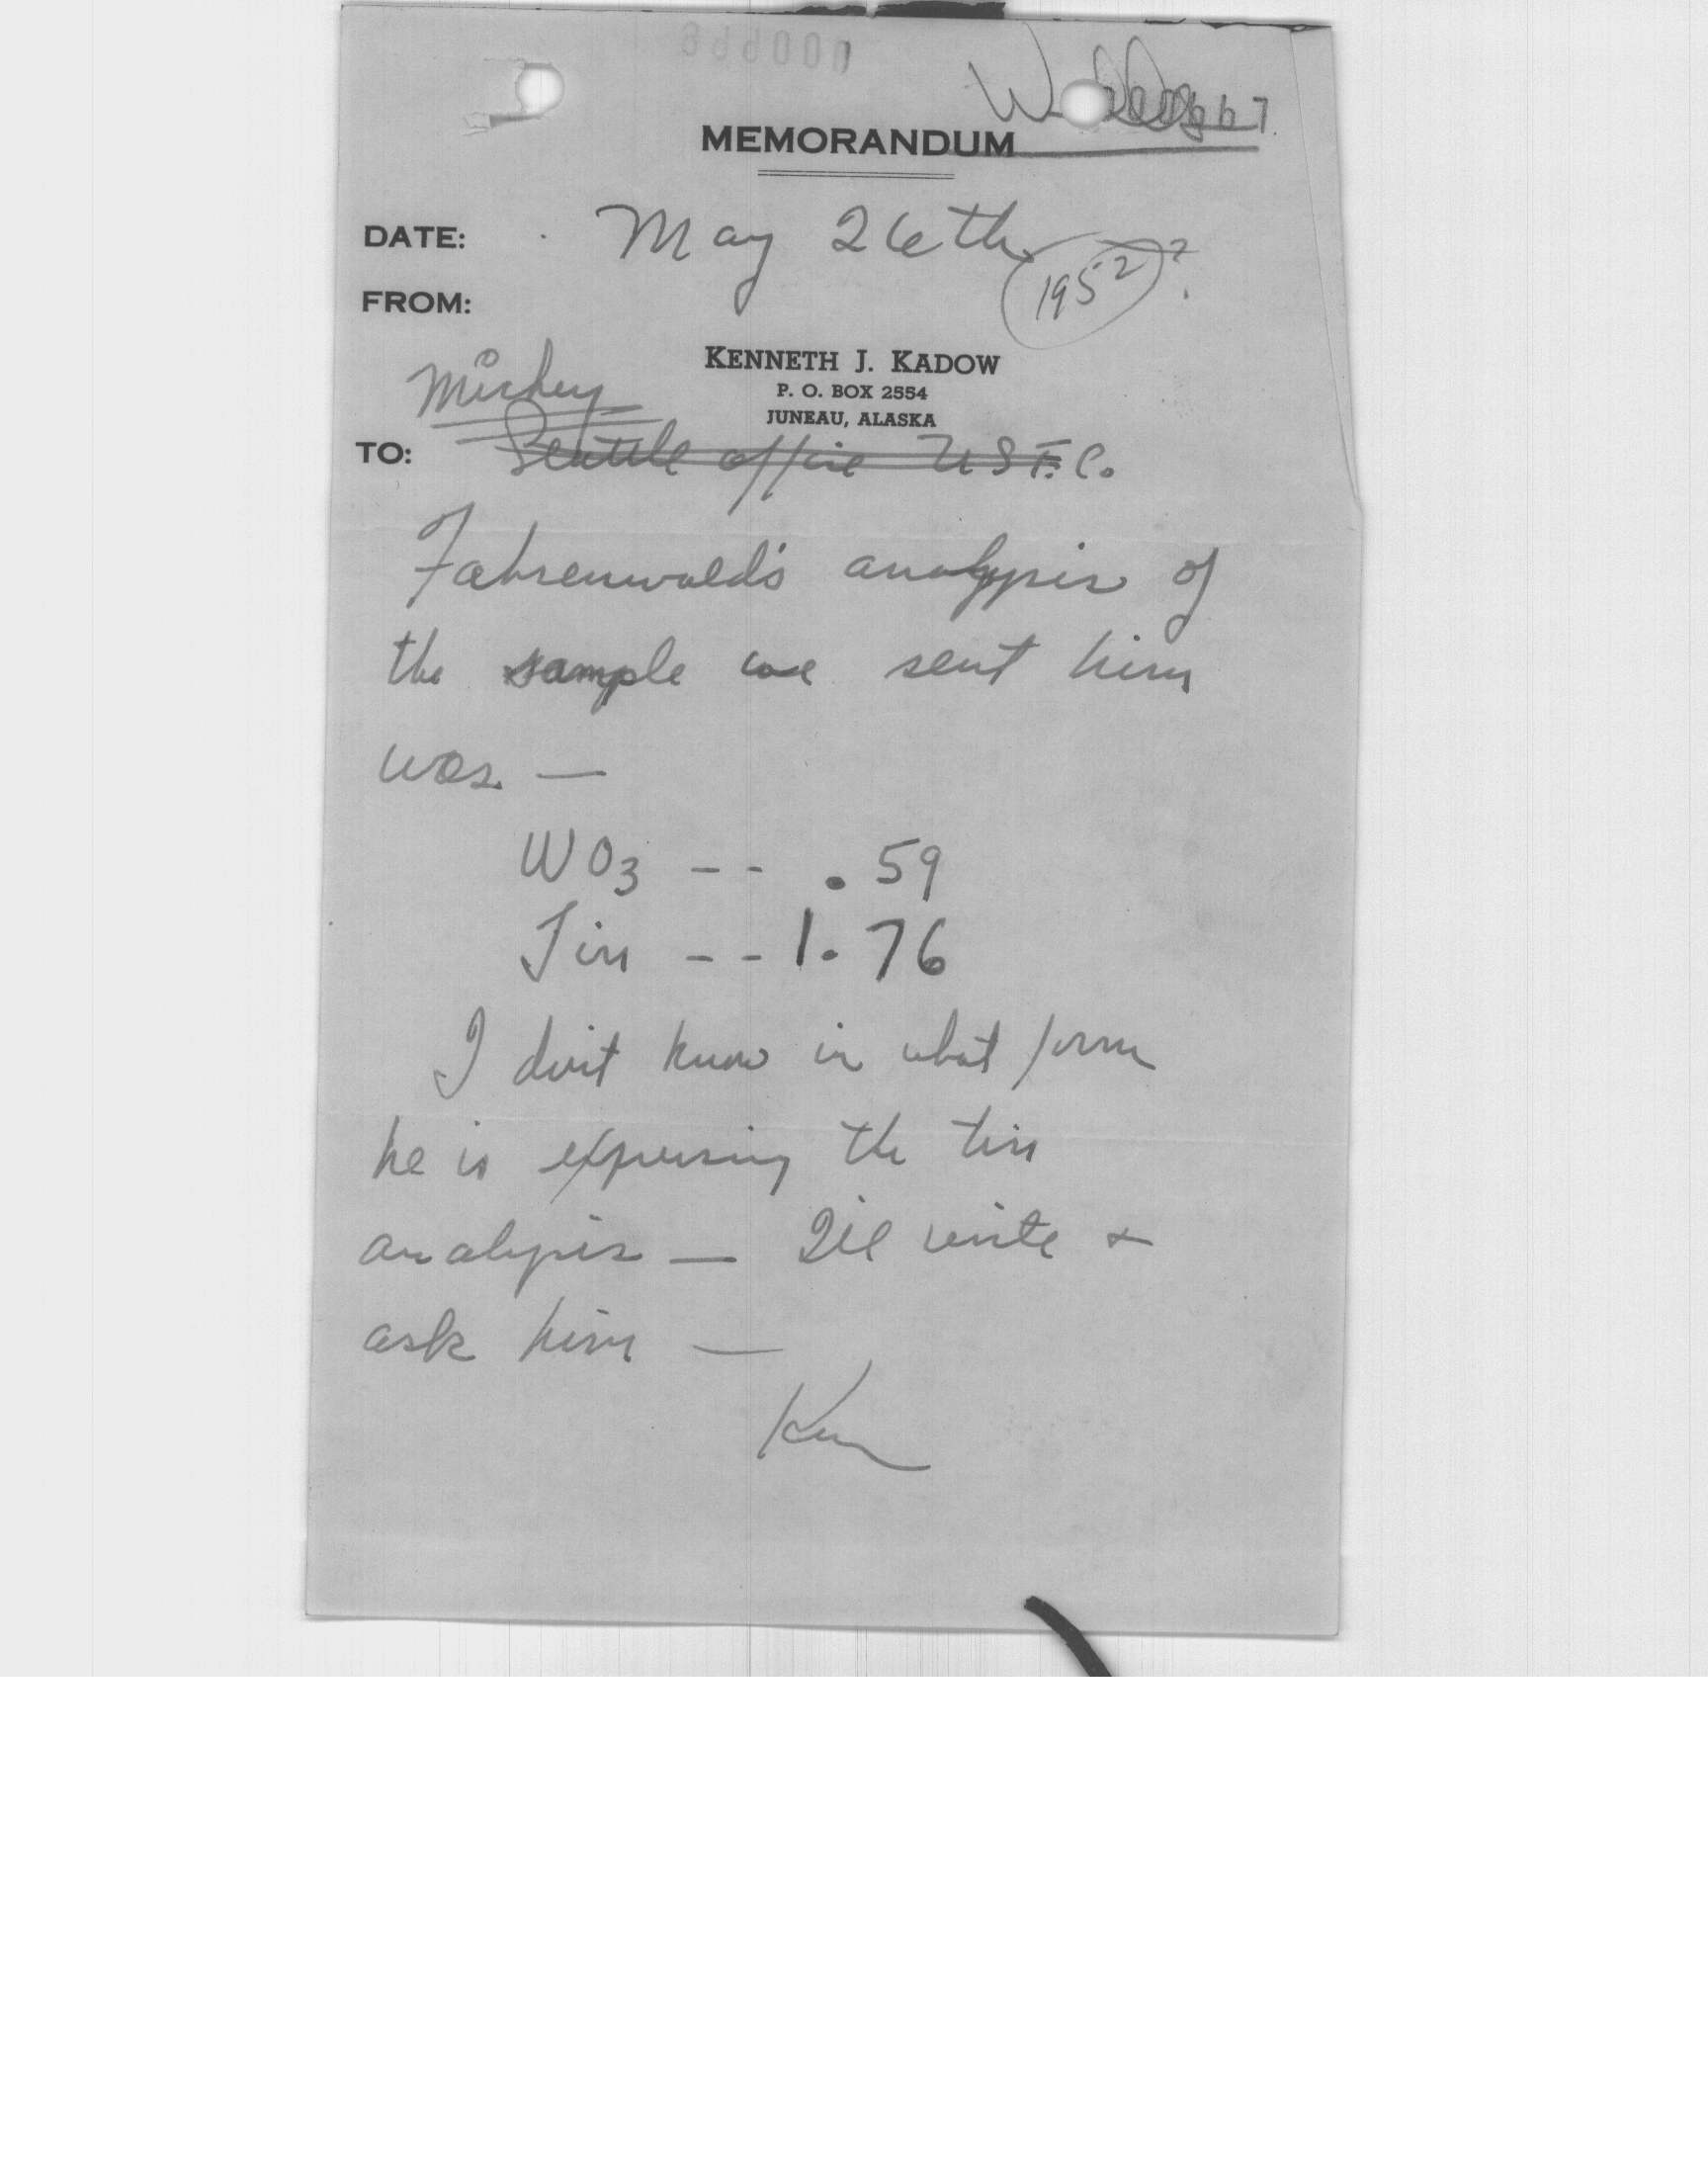 MEMORANDUM
DATE: May 26th (1952)?
FROM:
KENNETH J. KADOW
P. O. BOX 2554
JUNEAU, ALASKA
Mickey
TO: Seattle office U S F. C.
Fahrenwald's analysis of
the sample we sent him
was —
WO3 -- .59
Tin -- 1.76
I don't know in what form
he is expressing the tin
analysis — I'll write &
ask him —
Ken